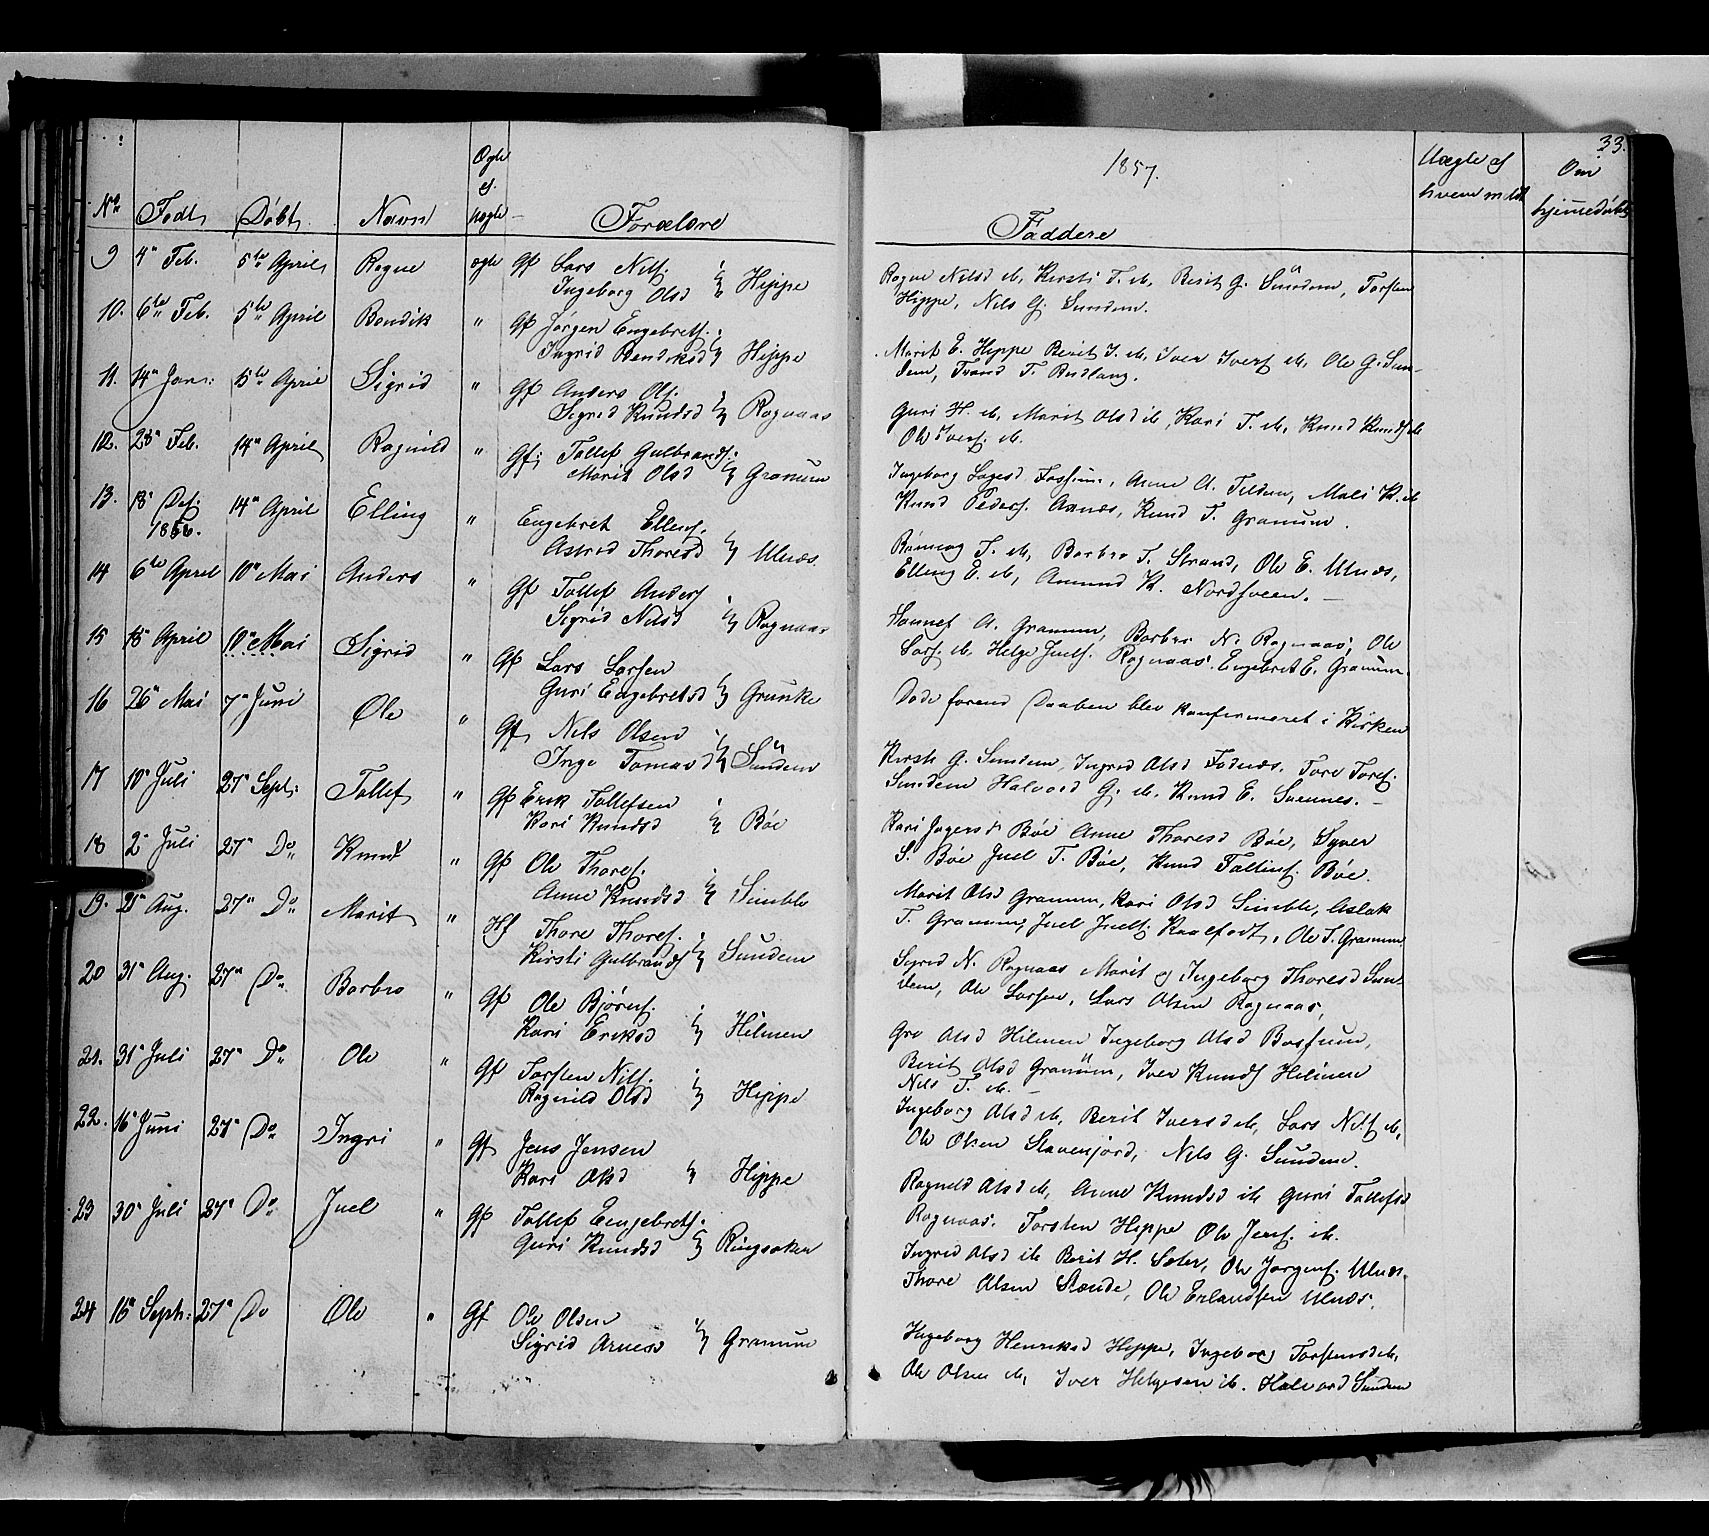 33.
1857.
No Født Døbt Navn Ægte el. uægte Forældre Faddere Uægte el hvem m Om hjemmedøbt
9 4de Feb. 5te April Ragne ægte Gf Lars Nilss. Ingeborg Olsd Hippe
Ragne Nilsd ib, Kirsti T. ib, Berit G. Sündem, Torsten
Hippe, Nils G. Sundem.
10. 6te Feb. 5te April Bendik " Gf Jørgen Engebrets. Ingrid Bendiksd Hippe
Marit E. Hippe Berit J. ib, Iver Ivers ib, Ole G. Sun-
dem, Trand T.
11. 14de Jan: 5te April Sigrid " Gf Anders Ols. Sigrid Knudsd Rognaas
Guri H. ib, Marit Olsd ib, Kari T. ib, Knud Knuds ib
Ole Ivers. ib.
12. 28 Feb. 14de April Ragnild " Gf: Tollef Gulbrands: Marit Olsd Gramum
Ingeborg Fossum, Anne A. Mali K. ib
Knud Peders. Aanæs, Knud T. Gramum.
13. 18 1856. 14de April Elling " Engebret Ellens. Astrid Thoresd Ulnæs
T. ib, Barbro T. Strand, Ole E. Ulnæs,
Elling E. ib, Amund K. Nordsveen.
14 6te April 10de Mai Anders " Gf Tollef Anders Sigrid Nilsd Rognaas
A. Gramum, Barbro N. Rognaas, Ole
Lars. ib Helge Juels. Rognaas. Engebret E. Gramum.
15 18 April 10de Mai Sigrid " Gf Lars Larsen Guri Engebretsd Grunke
Døde forend Daaben blev konfirmeret i Kirken
16 26 Mai 7de Juni Ole " Gf Nils Olsen Inge Sündem
Kirsti G. Sundem, Ingrid Olsd Fodnæs, Tore Tores.
Sundem Halvord G. ib. Knud E. Svennes.
17 10 Juli 27 Sept: Tollef " Gf Erik Tollefsen Kari Knudsd Bøe
Kari Bøe Anne Thoresd Bøe, Syver
S. Bøe Juel T. Bøe, Knud Bøe.
18 2 Juli 27 Do Knud " Gf Ole Thores. Anne Knudsd Simble
Marit Olsd Gramum, Kari Olsd Simble, Aslak
T. Gramum, Juel Juels. Ole T. Gramum
19. 21 Aug. 27 Do Marit " Hf Thore Thores. Kirsti Gulbrands Sundem
Sigrid N. Rognaas Marit og Ingeborg Thoresd Sun-
dem, Ole Larsen, Lars Olsen Rognaas,
20 31 Aug. 27 Do Barbro " Gf Ole Bjørns. Kari Eriksd Hilmen
Gro Olsd Hilmen Ingeborg Olsd
Berit Olsd Gramüm, Iver Knuds Hilmen
Nils T. ib.
21. 31 Juli 27 Do Ole " Gf Torsten Nils. Ragnild Olsd Hippe
Ingeborg Olsd ib, Berit Iversd ib, Lars Nils ib,
Ole Olsen Stavenjord, Nils G. Sundem.
22. 16 Juni 27 Do Ingri " Gf Jens Jensen Kari Olsd Hippe
Ragnild Olsd ib, Anne Knudsd ib Guri Tollefsd
Rognaas. Torsten Hippe Ole Jens. ib.
23 30 Juli 27 Do Juel " Gf Tollef Engebrets. Guri Knudsd Ringsaker
Ingrid Olsd ib Berit H. Sæter, Ole Jørgens. Ulnæs.
Thore Olsen Ole Erlandsen Ulnæs.
24 15 Sept: 27 Do Ole " Gf Ole Olsen Sigrid Arnesd Gramum
Ingeborg Henriksd Hippe, Ingeborg Torstensd ib,
Ole Olsen ib, Iver Helgesen ib. Halvord Sündem